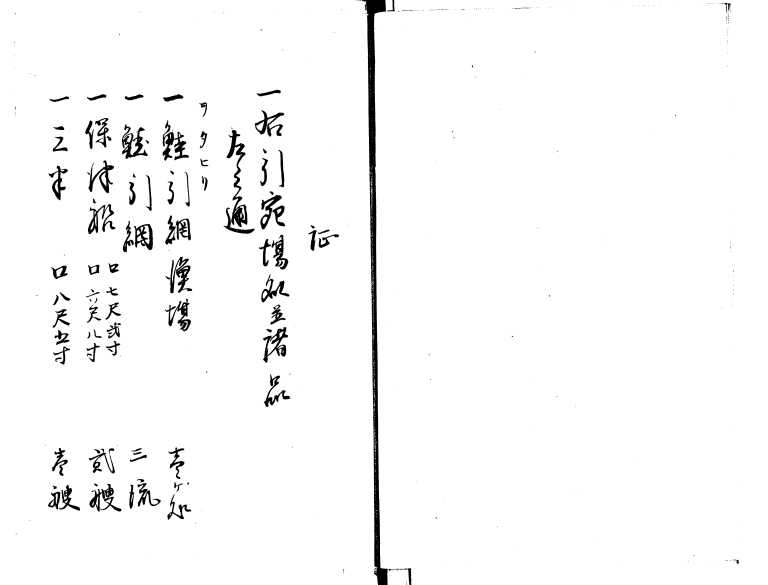 証
一右引宛場処並諸品
左之通
ヲタヒリ
一鮭引網漁場 壱ケ処
一鮭引網 三流
一保津船 口七尺弐寸 口六尺八寸 弐艘
一三半 口八尺五寸 壱艘